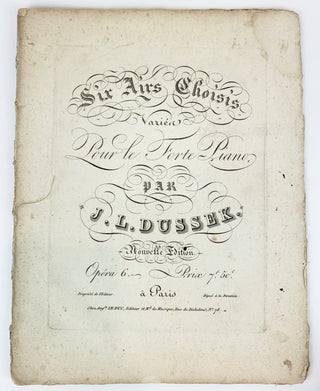 Six Airs Choisis
Variés
Pour le Forte Piano,
PAR
J. L. DUSSEK.
Nouvelle Edition.
Opéra 6. Prix 7f. 50c.
Propriété de l'Editeur à Paris Déposé à la Direction
Chez Augte. LE DUC, Editeur et Md. de Musique, Rue de Richelieu, No. 78.